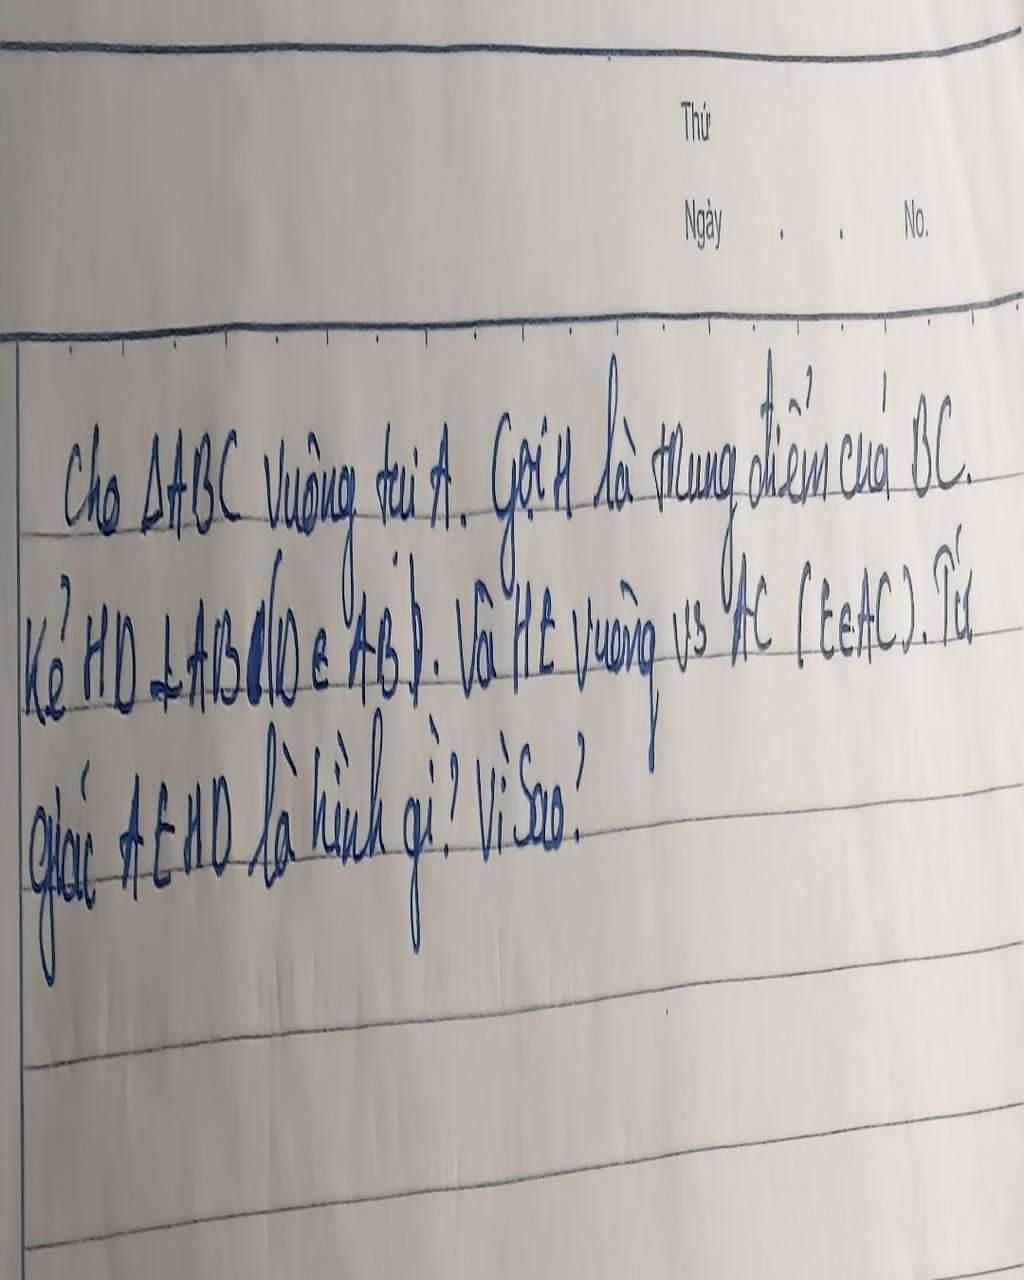 Thứ
Ngày . . No.
Cho ΔABC vuông tại A. Gọi H là trung điểm của BC.
Kẻ HD ⊥ AB (D ∈ AB). Và HE vuông vs AC (E∈AC). Tứ
giác AEHD là hình gì? Vì sao?